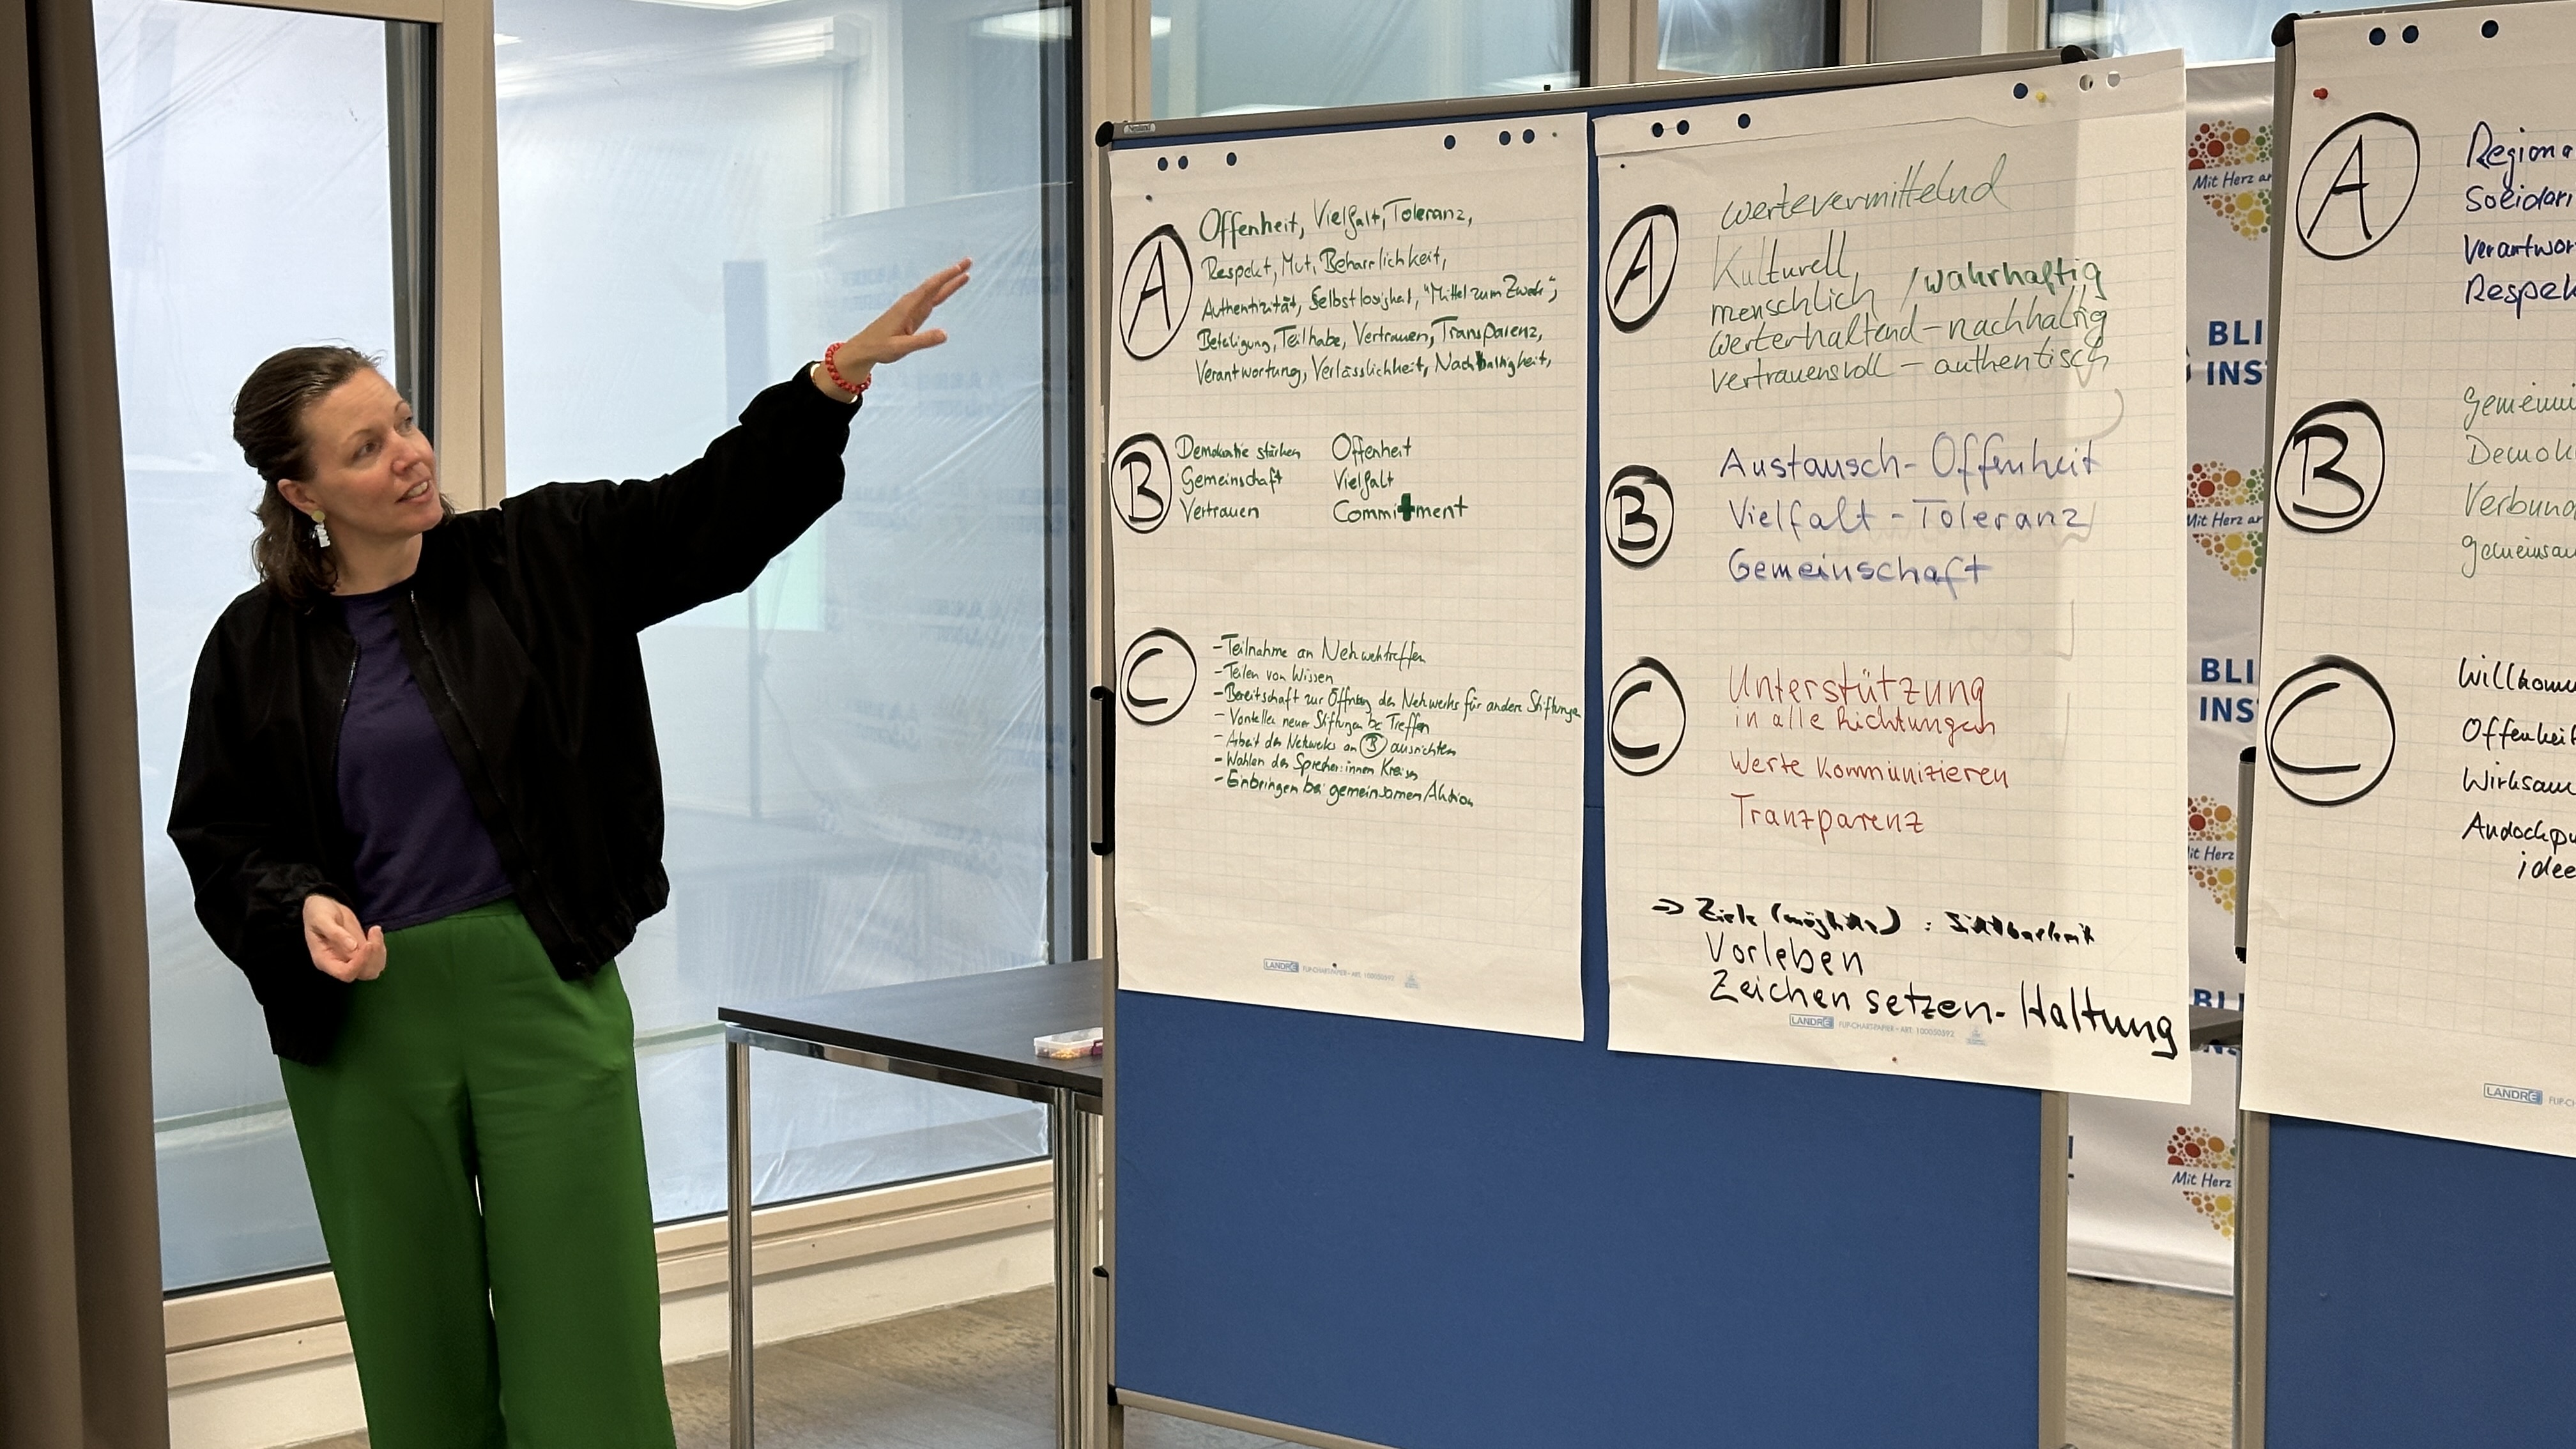 A
Offenheit, Vielfalt, Toleranz,
Respekt, Mut, Beharrlichkeit,
Authentizität, Selbstlosigkeit, "Mittel zum Zweck",
Beteiligung, Teilhabe, Vertrauen, Transparenz,
Verantwortung, Verlässlichkeit, Nachhaltigkeit,
B
Demokratie stärken
Gemeinschaft
Vertrauen
Offenheit
Vielfalt
Commitment
C
- Teilnahme an Netzwerktreffen
- Teilen von Wissen
- Bereitschaft zur Öffnung des Netzwerks für andere Stiftungen
- Vorstellen neuer Stiftungen bei Treffen
- Arbeit des Netzwerks an B ausrichten
- Wahlen des Sprecher:innen Kreises
- Einbringen bei gemeinsamen Aktion
LANDRÉ FLIP-CHART-PAPIER • ART. 100050592
A
wertevermittelnd
Kulturell,
menschlich / wahrhaftig
werterhaltend - nachhaltig
vertrauensvoll - authentisch
B
Austausch - Offenheit
Vielfalt - Toleranz
Gemeinschaft
C
Unterstützung
in alle Richtungen
Werte kommunizieren
Tranzparenz
=> Ziele (mögliche) : Sichtbarkeit
Vorleben
Zeichen setzen - Haltung
LANDRÉ FLIP-CHART-PAPIER • ART. 100050592
A
Regiona
Solidari
Verantwor
Respek
B
Gemein
Demok
Verbund
gemeinsa
C
Willkomm
Offenheit
Wirksam
Andockpu
idee
LANDRÉ FLIP-CH
Mit Herz an
BLI
INS
Mit Herz an
BLI
INS
Mit Herz
BLI
Mit Herz